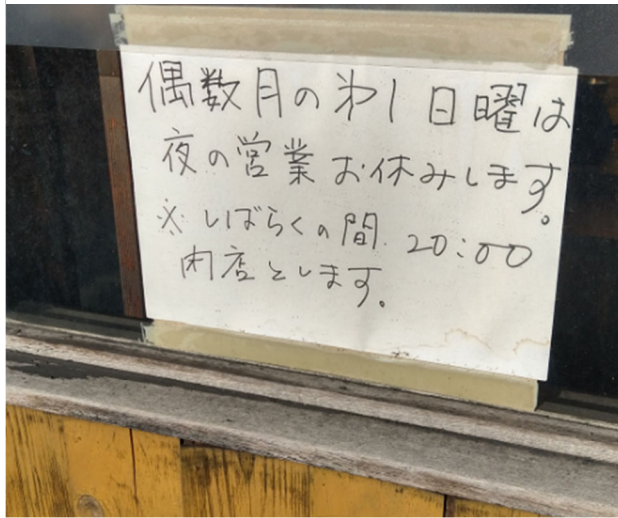 偶数月の第1日曜は
夜の営業お休みします。
※しばらくの間 20:00
閉店とします。